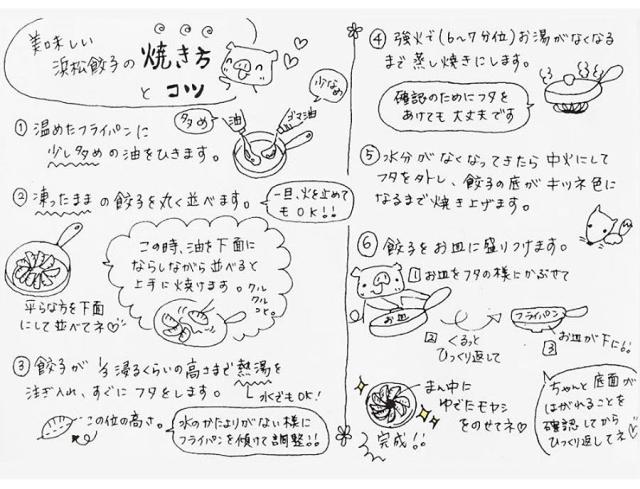 美味しい
浜松餃子の焼き方
とコツ
① 温めたフライパンに
少し多めの油をひきます。
多め
油
ゴマ油
少なめ
② 凍ったままの餃子を丸く並べます。
一旦、火を止めて
もOK!!
平らな方を下面
にして並べてネ♡
この時、油を下面に
ならしながら並べると
上手に焼けます。
クル
クル
③ 餃子が1/3浸るくらいの高さまで熱湯を
注ぎ入れ、すぐにフタをします。
水でもOK!
この位の高さ。
水のかたよりがない様に
フライパンを傾けて調整!!
④ 強火で(6〜7分位)お湯がなくなる
まで蒸し焼きにします。
確認のためにフタを
あけても大丈夫です
⑤ 水分がなくなってきたら中火にして
フタを外し、餃子の底がキツネ色に
なるまで焼き上げます。
⑥ 餃子をお皿に盛りつけます。
1 お皿をフタの様にかぶせて
お皿
2 くるっと
ひっくり返して
フライパン
3 お皿が下に!!
まん中に
ゆでたモヤシ
をのせてネ♡
完成!!
ちゃんと底面が
はがれることを
確認してから
ひっくり返してネ♡